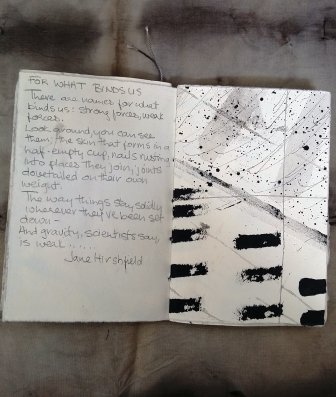 FOR WHAT BINDS US
There are names for what
binds us: strong forces, weak
forces.
Look around, you can see
them: the skin that forms in a
half-empty cup, nails rusting
into places they join, joints
dovetailed on their own
weight.
The way things stay solidly
wherever they've been set
down -
And gravity, scientists say,
is weak.....
Jane Hirshfield